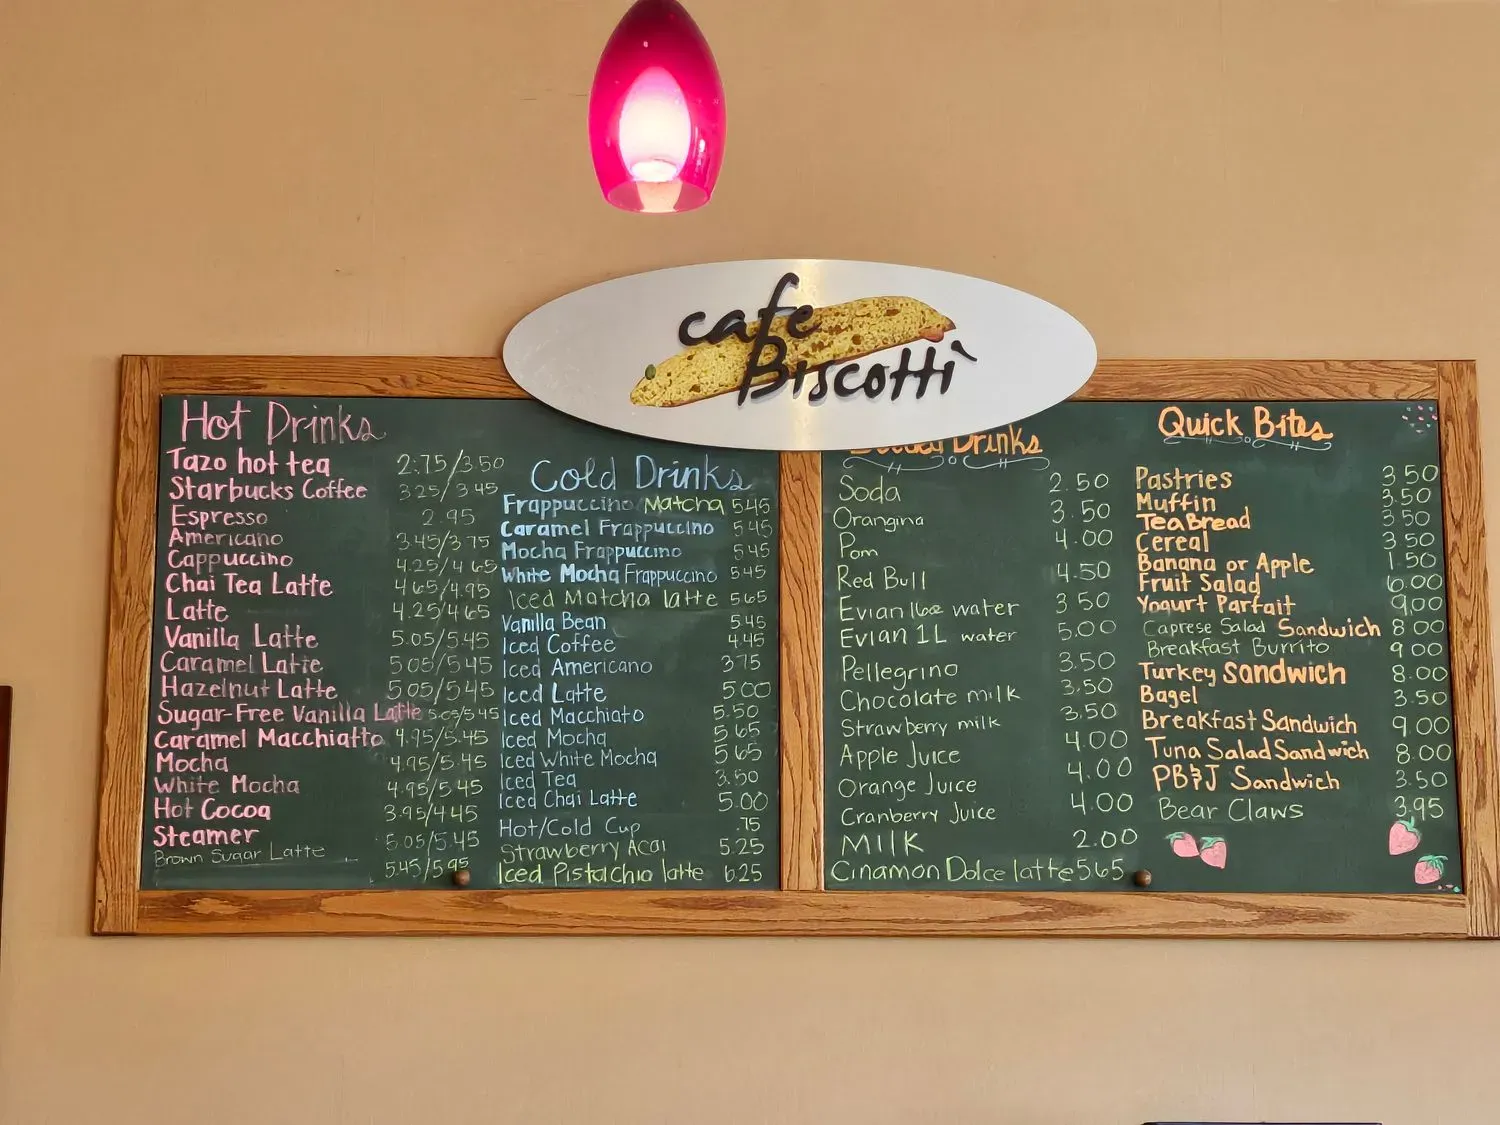 cafe
Biscotti
Hot Drinks
Tazo hot tea 2.75/3.50
Starbucks Coffee 3.25/3.45
Espresso 2.95
Americano 3.45/3.75
Cappuccino 4.25/4.65
Chai Tea Latte 4.65/4.95
Latte 4.25/4.65
Vanilla Latte 5.05/5.45
Caramel Latte 5.05/5.45
Hazelnut Latte 5.05/5.45
Sugar-Free Vanilla Latte 5.05/5.45
Caramel Macchiatto 4.95/5.45
Mocha 4.95/5.45
White Mocha 4.95/5.45
Hot Cocoa 3.95/4.45
Steamer 5.05/5.45
Brown Sugar Latte 5.45/5.95
Cold Drinks
Frappuccino Matcha 5.45
Caramel Frappuccino 5.45
Mocha Frappuccino 5.45
White Mocha Frappuccino 5.45
Iced Matcha latte 5.65
Vanilla Bean 5.45
Iced Coffee 4.45
Iced Americano 3.75
Iced Latte 5.00
Iced Macchiato 5.50
Iced Mocha 5.65
Iced White Mocha 5.65
Iced Tea 3.50
Iced Chai Latte 5.00
Hot/Cold Cup .75
Strawberry Acai 5.25
Iced Pistachio latte 6.25
Drinks
Soda 2.50
Orangina 3.50
Pom 4.00
Red Bull 4.50
Evian 16oz water 3.50
Evian 1L water 5.00
Pellegrino 3.50
Chocolate milk 3.50
Strawberry milk 3.50
Apple Juice 4.00
Orange Juice 4.00
Cranberry Juice 4.00
Milk 2.00
Cinamon Dolce latte 5.65
Quick Bites
Pastries 3.50
Muffin 3.50
Tea Bread 3.50
Cereal 3.50
Banana or Apple 1.50
Fruit Salad 6.00
Yogurt Parfait 9.00
Caprese Salad Sandwich 8.00
Breakfast Burrito 9.00
Turkey Sandwich 8.00
Bagel 3.50
Breakfast Sandwich 9.00
Tuna Salad Sandwich 8.00
PB&J Sandwich 3.50
Bear Claws 3.95